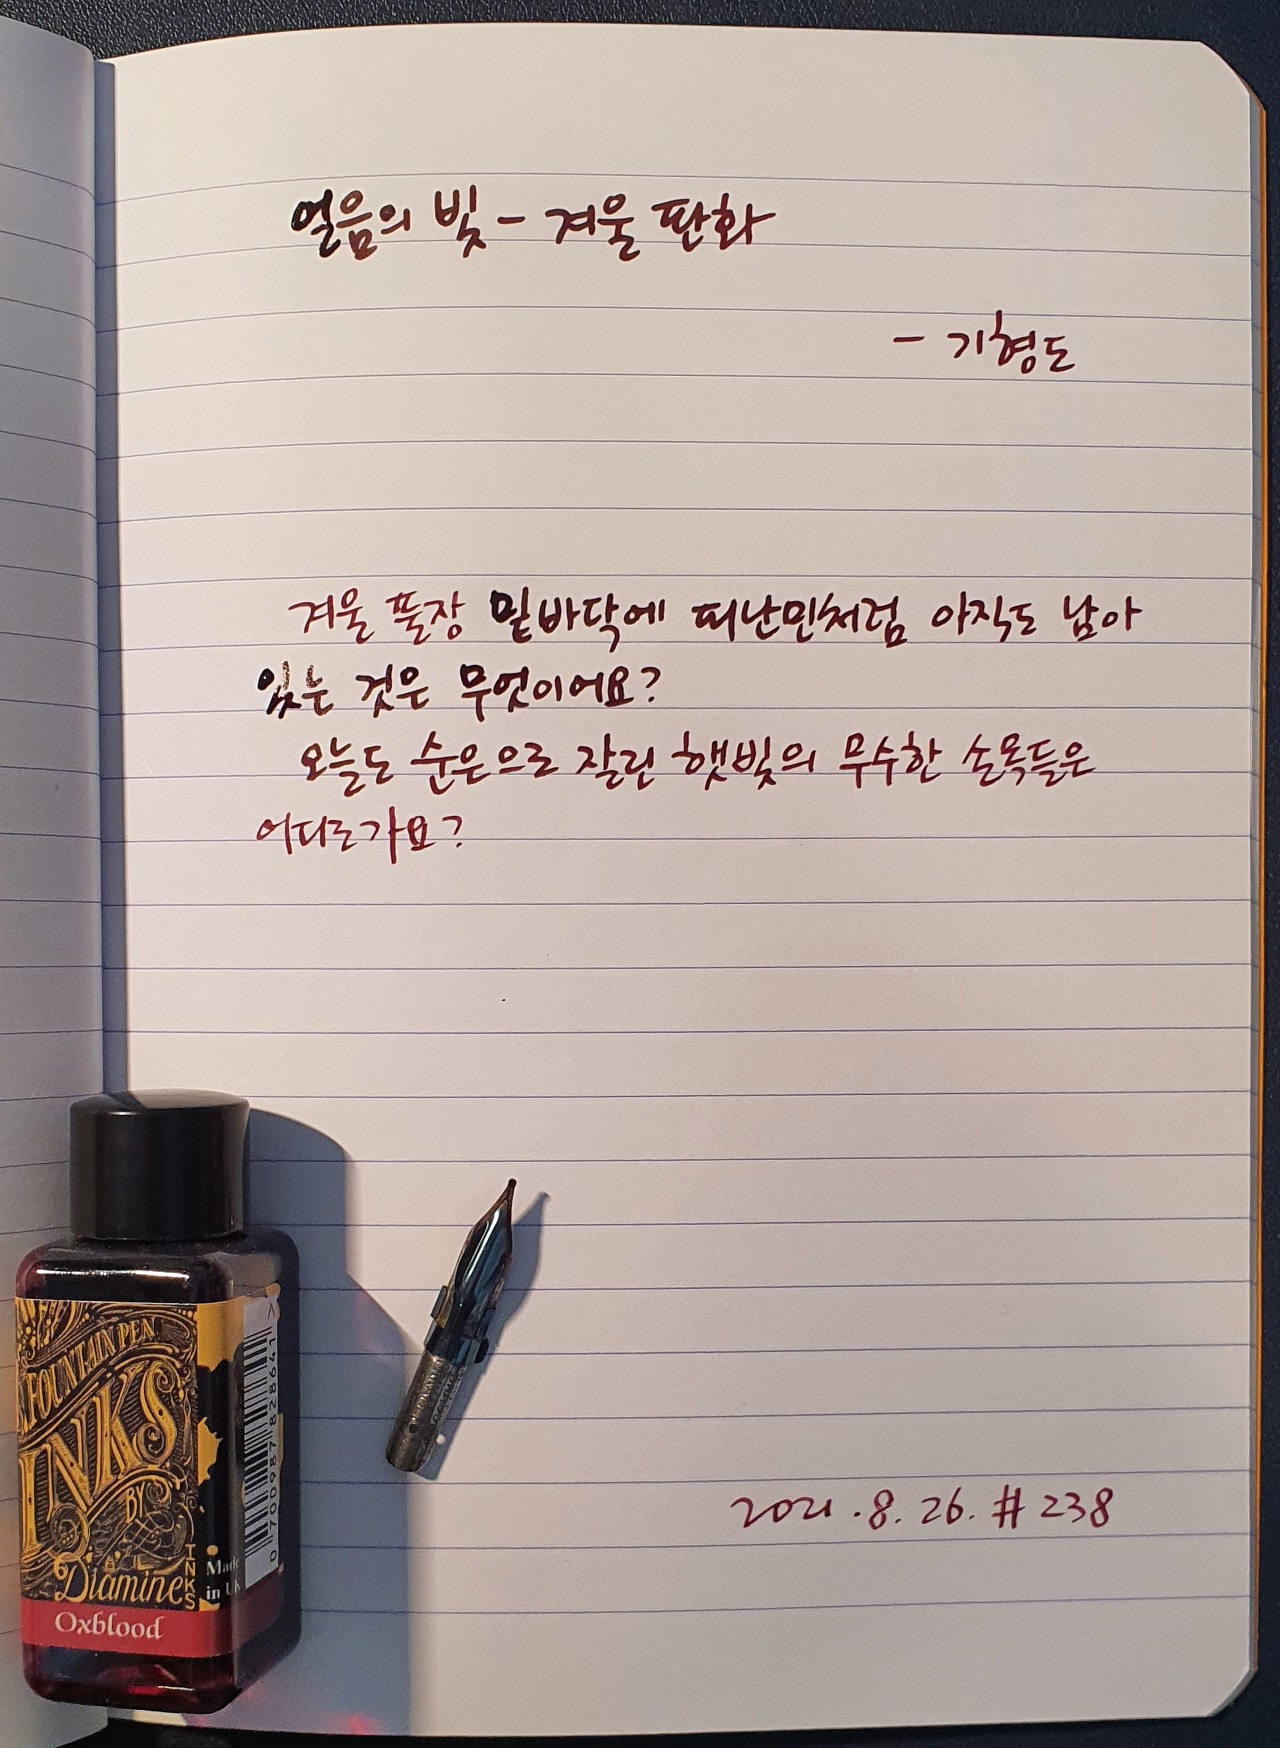 얼음의 빛 - 겨울 판화
- 기형도
겨울 풀장 밑바닥에 피난민처럼 아직도 남아
있는 것은 무엇이어요?
오늘도 순은으로 잘린 햇빛의 무수한 손목들은
어디로가요?
2021.8.26. #238
FOUNTAIN PEN
INKS
BY
Diamine
INKS
Made
in UK
Oxblood
0 700987 828641 >